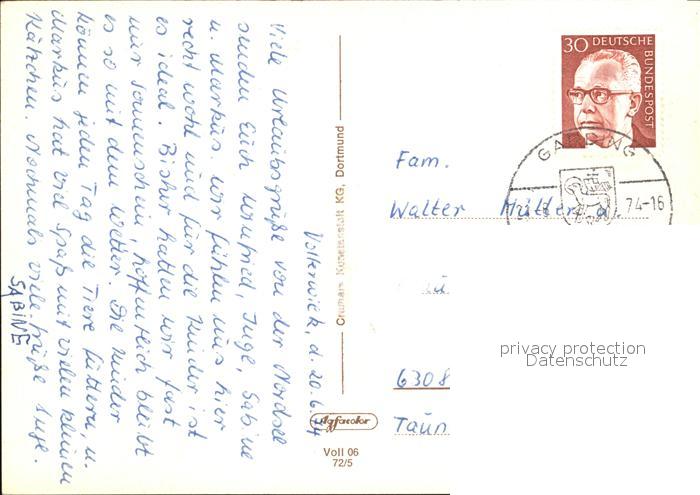 Vollerwiek, d. 20.6.74
Viele Urlaubsgrüße von der Nordsee
senden Euch Winfried, Inge, Sabine
u. Markus. Wir fühlen uns hier
recht wohl und für die Kinder ist
es ideal. Bisher hatten wir fast
nur Sonnenschein, hoffentlich bleibt
es so mit dem Wetter. Die Kinder
können jeden Tag die Tiere füttern, u.
Markus hat viel Spaß mit vielen kleinen
Kätzchen. Nochmals viele Grüße Inge.
SABINE
Cramers Kunstanstalt KG, Dortmund
Agfacolor
Voll 06
72/5
30 DEUTSCHE
BUNDESPOST
GARDING
74-16
Fam.
Walter
6308
Taun
privacy protection
Datenschutz